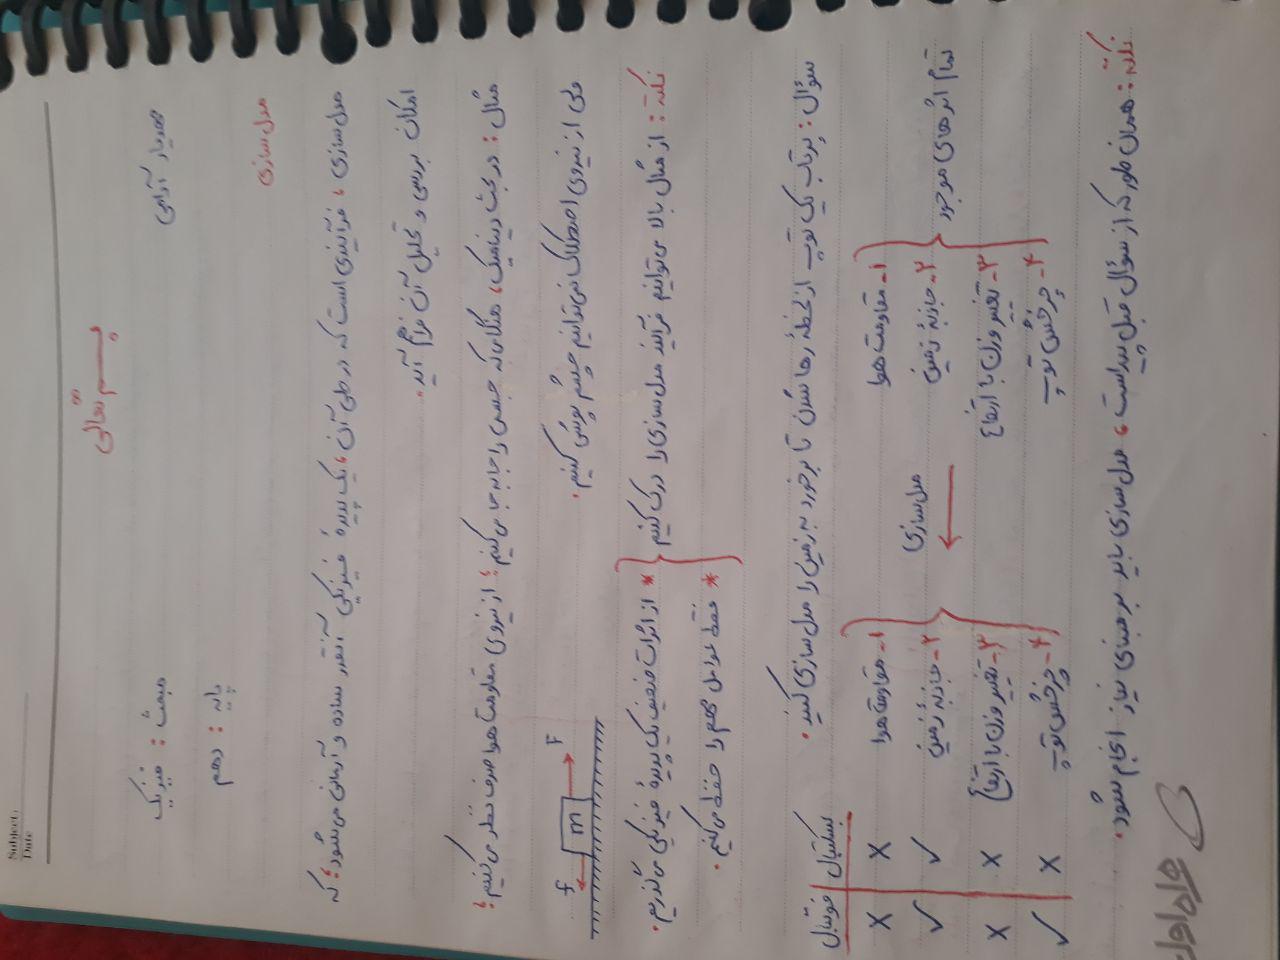 Subject:
Date
بسمه تعالی
مبحث : فیزیک
مهدیار آرامی
پایه : دهم
مدل سازی
مدل سازی ، فرآیندی است که در طی آن ، یک پدیدهٔ فیزیکی آنقدر ساده و آرمانی می‌شود؛ که
امکان بررسی و تحلیل آن فراهم آید .
مثال : در بحث دینامیک ، هنگامی که جسمی را جابه جا می‌کنیم ؛ از نیروی مقاومت هوا صرف نظر می‌کنیم ؛
ولی از نیروی اصطکاک نمی‌توانیم چشم پوشی کنیم .
f m F
نکته : از مثال بالا می‌توانیم فرآیند مدل سازی را درک کنیم
* از اثرات ضعیف یک پدیدهٔ فیزیکی می‌گذریم .
* فقط عوامل مهم را حفظ می‌کنیم .
سؤال : پرتاب یک توپ از لحظهٔ رها شدن تا برخورد به زمین را مدل سازی کنید .
تمام اثرهای موجود
۱- مقاومت هوا
۲- جاذبهٔ زمین
۳- تغییر وزن با ارتفاع
۴- چرخش توپ
مدل سازی
بسکتبال فوتبال
۱- مقاومت هوا × ×
۲- جاذبهٔ زمین ✓ ✓
۳- تغییر وزن با ارتفاع × ×
۴- چرخش توپ × ✓
نکته : همان طور که از سؤال قبل پیداست ، مدل سازی باید بر مبنای نیاز انجام شود .